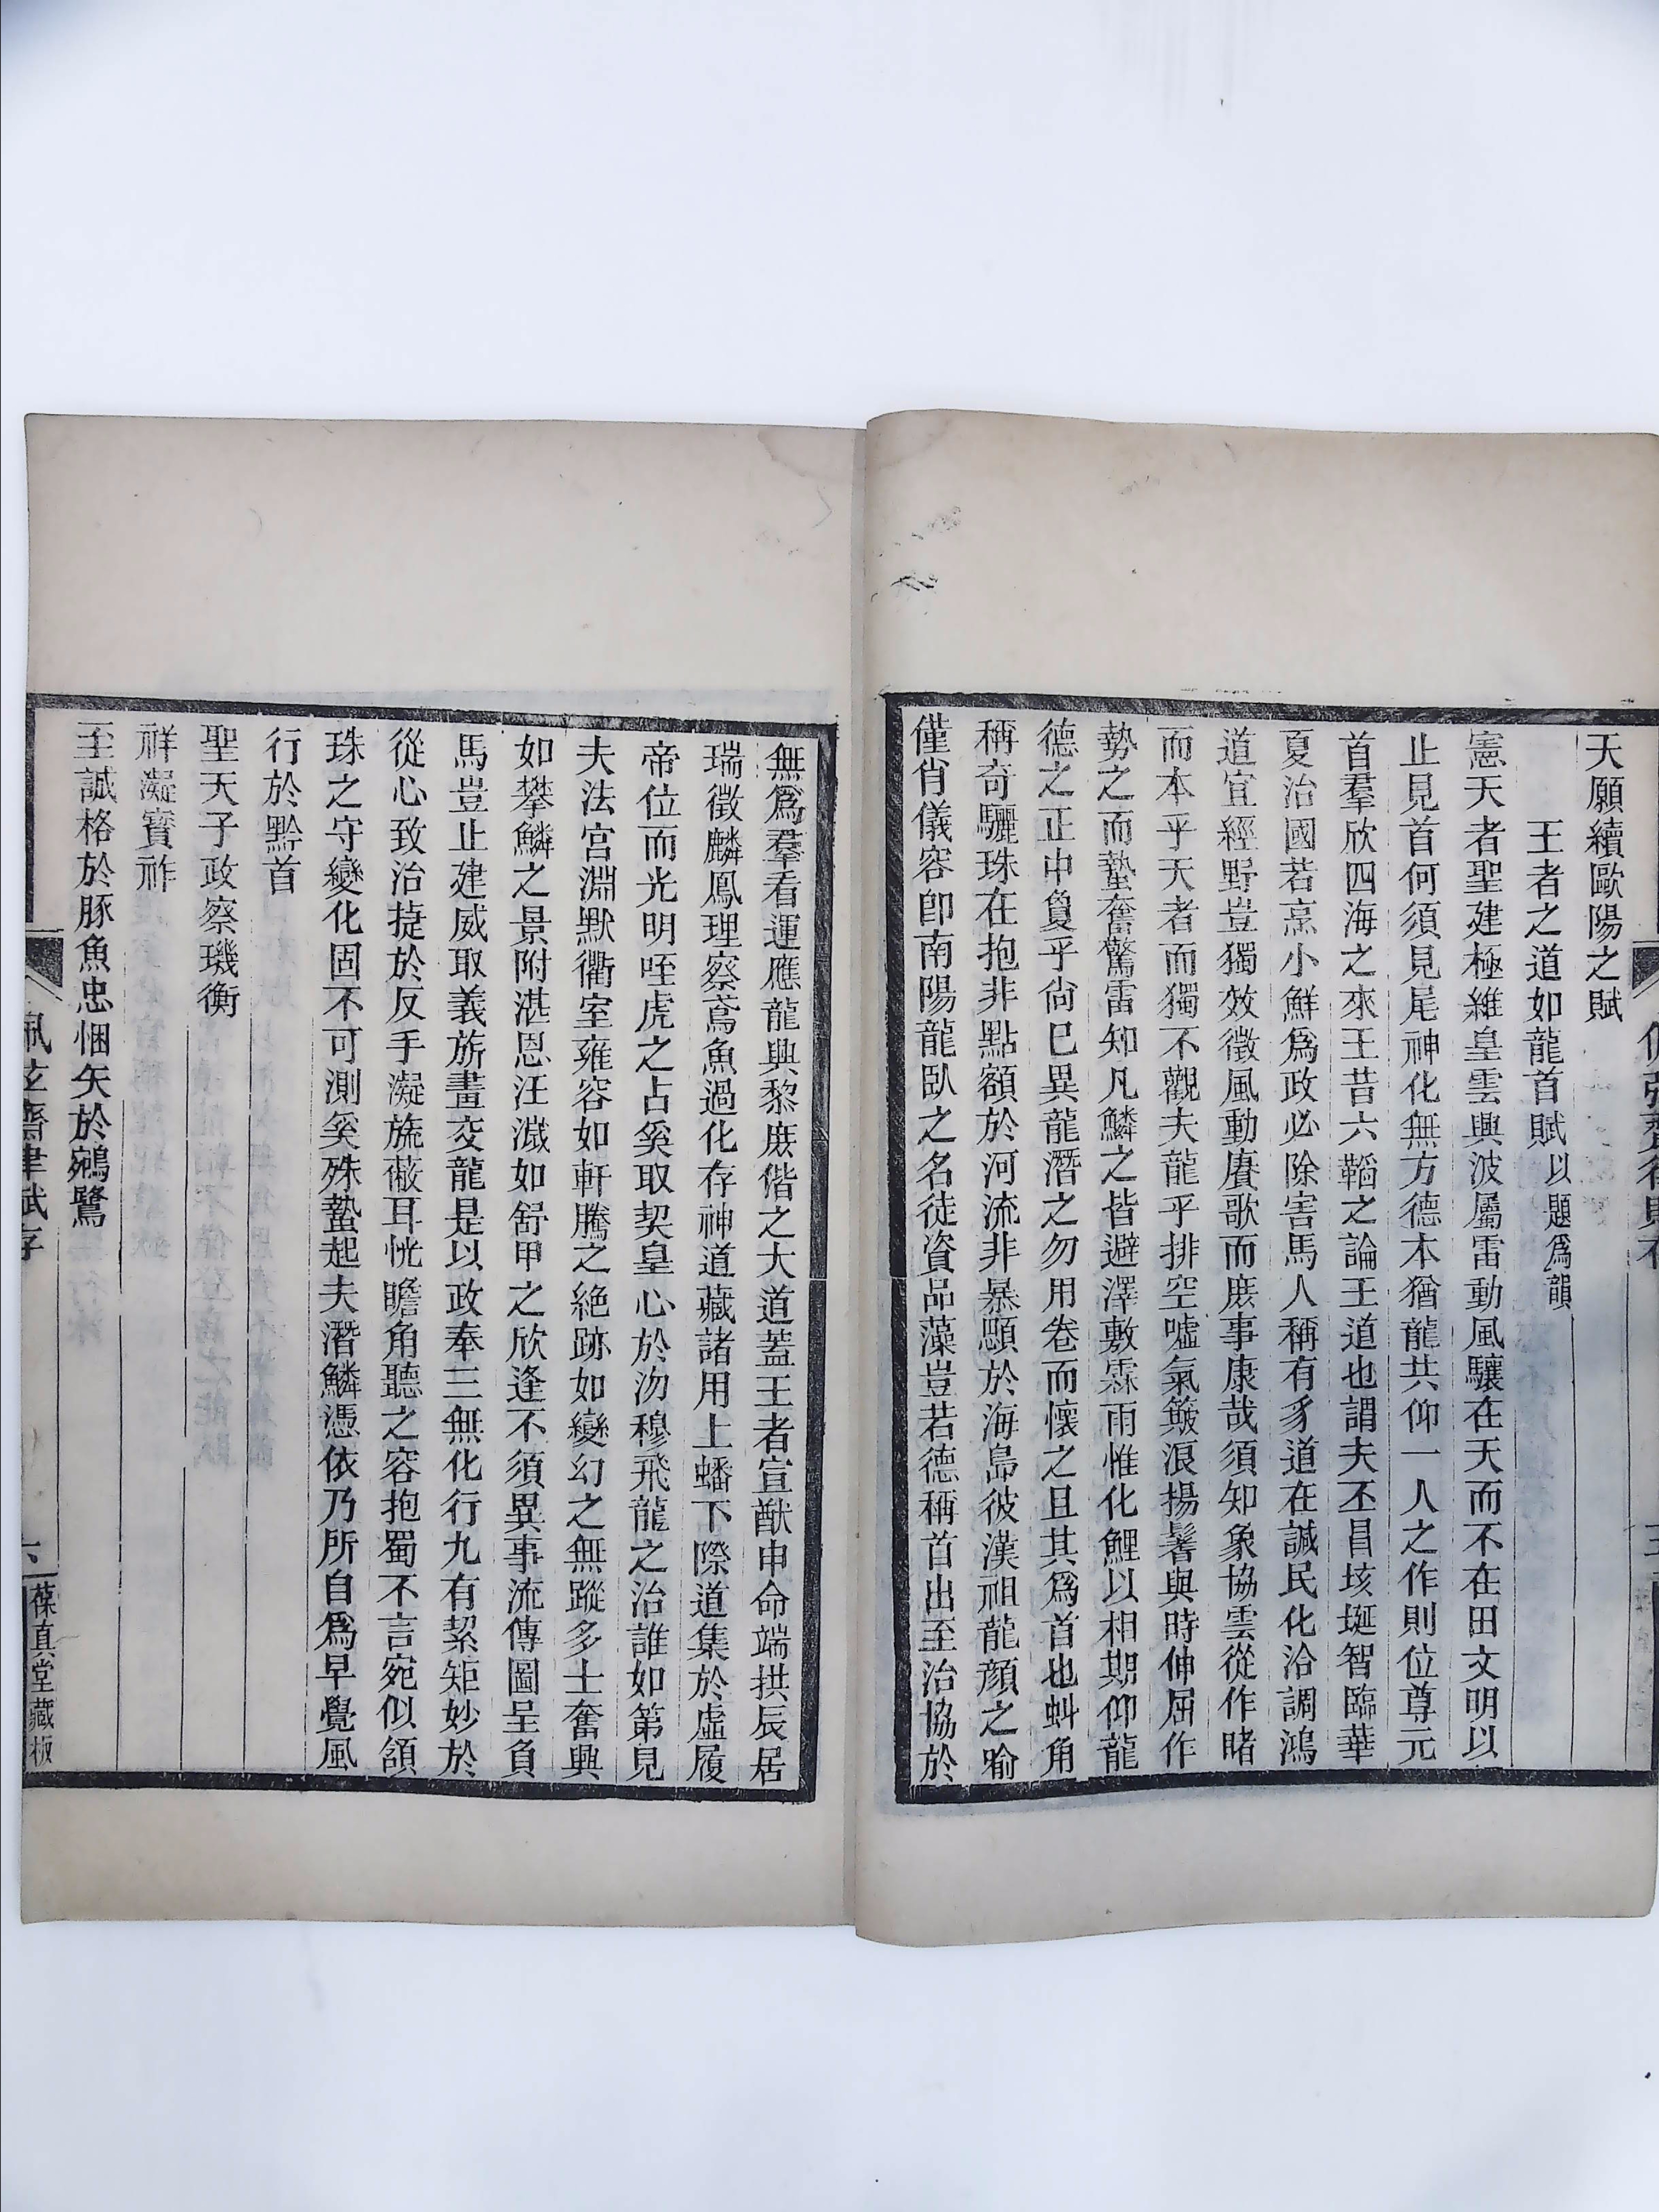 天願續歐陽之賦
王者之道如龍首賦以題爲韻
憲天者聖建極維皇雲興波屬雷動風驤在天而不在田文明以
止見首何須見尾神化無方德本猶龍共仰一人之作則位尊元
首羣欣四海之來王昔六韜之論王道也謂夫丕冒垓埏智臨華
夏治國若烹小鮮爲政必除害馬人稱有豸道在諴民化洽調鴻
道宜經野豈獨效徵風動賡歌而庶事康哉須知象協雲從作睹
而本乎天者而獨不觀夫龍乎排空噓氣簸浪揚鬐與時伸屈作
勢之而蟄奮驚雷知凡鱗之皆避澤敷霖雨惟化鯉以相期仰龍
德之正中敻乎尙已異龍潛之勿用卷而懷之且其爲首也蚪角
稱奇驪珠在抱非點額於河流非暴顋於海島彼漢祖龍顔之喻
僅肖儀容卽南陽龍臥之名徒資品藻豈若德稱首出至治協於
無爲羣看運應龍興黎庶偕之大道蓋王者宣猷申命端拱辰居
瑞徵麟鳳理察鳶魚過化存神道藏諸用上蟠下際道集於虛履
帝位而光明咥虎之占奚取契皇心於沕穆飛龍之治誰如第見
夫法宮淵默衢室雍容如軒騰之絶跡如變幻之無蹤多士奮興
如攀鱗之景附湛恩汪濊如舒甲之欣逢不須異事流傳圖呈負
馬豈止建威取義旂畫交龍是以政奉三無化行九有絜矩妙於
從心致治㨗於反手凝旒蔽耳恍瞻角聽之容抱蜀不言宛似頷
珠之守變化固不可測奚殊蟄起夫潛鱗憑依乃所自爲早覺風
行於黔首
聖天子政察璣衡
祥凝寳祚
至誠格於豚魚忠悃矢於鵷鷺
佩弦齋律賦存
六
葆真堂藏板